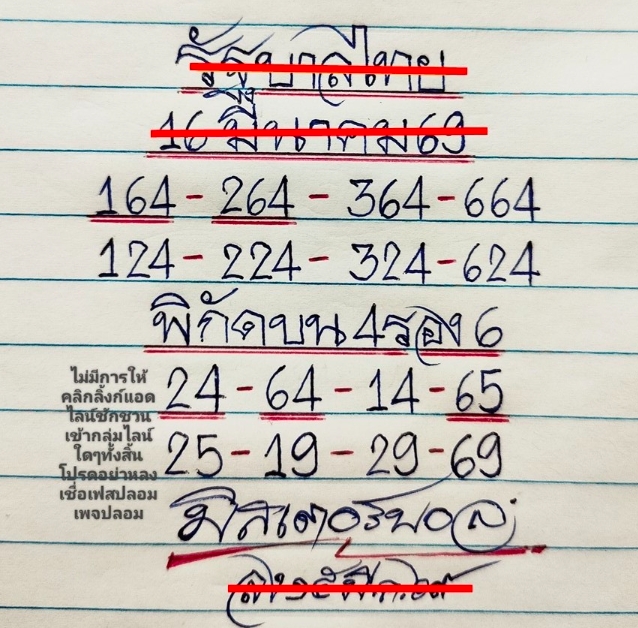 รัฐบาลไทย
16 มีนาคม 69
164 - 264 - 364 - 664
124 - 224 - 324 - 624
พิกัดบน 4 รอง 6
24 - 64 - 14 - 65
25 - 19 - 29 - 69
ไม่มีการให้
คลิกลิ้งก์แอด
ไลน์ชักชวน
เข้ากลุ่มไลน์
ใดๆทั้งสิ้น
โปรดอย่าหลง
เชื่อเฟสปลอม
เพจปลอม
มิสเตอร์บอล